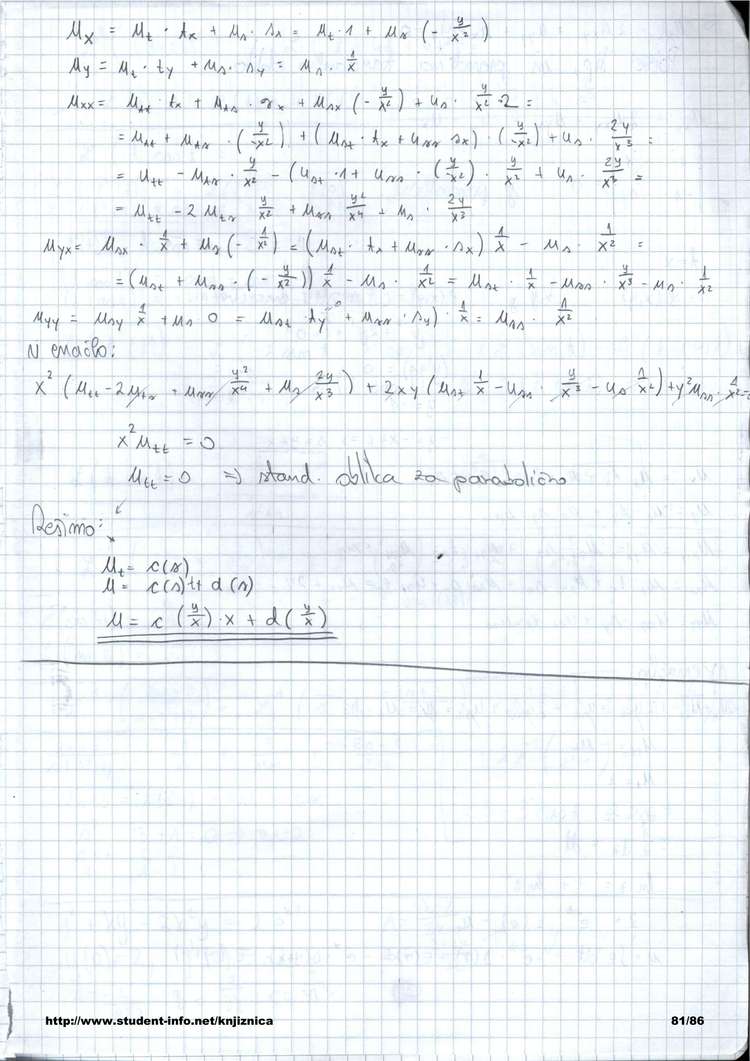 u_x = u_t · t_x + u_s · s_x = u_t · 1 + u_s (- y/x²)
u_y = u_t · t_y + u_s · s_y = u_s · 1/x
u_xx = u_tt · t_x + u_ts · s_x + u_sx (- y/x²) + u_s · y/x² · 2 =
= u_tt + u_ts · (y/-x²) + (u_st · t_x + u_ss s_x) · (y/-x²) + u_s · 2y/x³ =
= u_tt - u_ts · y/x² - (u_st · 1 + u_ss · (y/-x²) · y/x² + u_s · 2y/x³ =
= u_tt - 2 u_ts y/x² + u_ss y²/x⁴ + u_s · 2y/x³
u_yx = u_sx · 1/x + u_s (- 1/x²) = (u_st · t_x + u_ss · s_x) 1/x - u_s · 1/x² =
= (u_st + u_ss · (- y/x²)) 1/x - u_s · 1/x² = u_st · 1/x - u_ss · y/x³ - u_s · 1/x²
u_yy = u_sy 1/x + u_s 0 = u_st · t_y⁼⁰ + u_ss · s_y) · 1/x = u_ss · 1/x²
V enačbo:
x² (u_tt - 2u_ts + u_ss y²/x⁴ + u_s 2y/x³) + 2xy (u_st 1/x - u_ss · y/x³ - u_s 1/x²) + y² u_ss · 1/x² = 0
x² u_tt = 0
u_tt = 0 => stand. oblika za parabolično
Rešimo:
u_t = c(s)
u = c(s)·t + d(s)
u = c (y/x) · x + d (y/x)
http://www.student-info.net/knjiznica 81/86